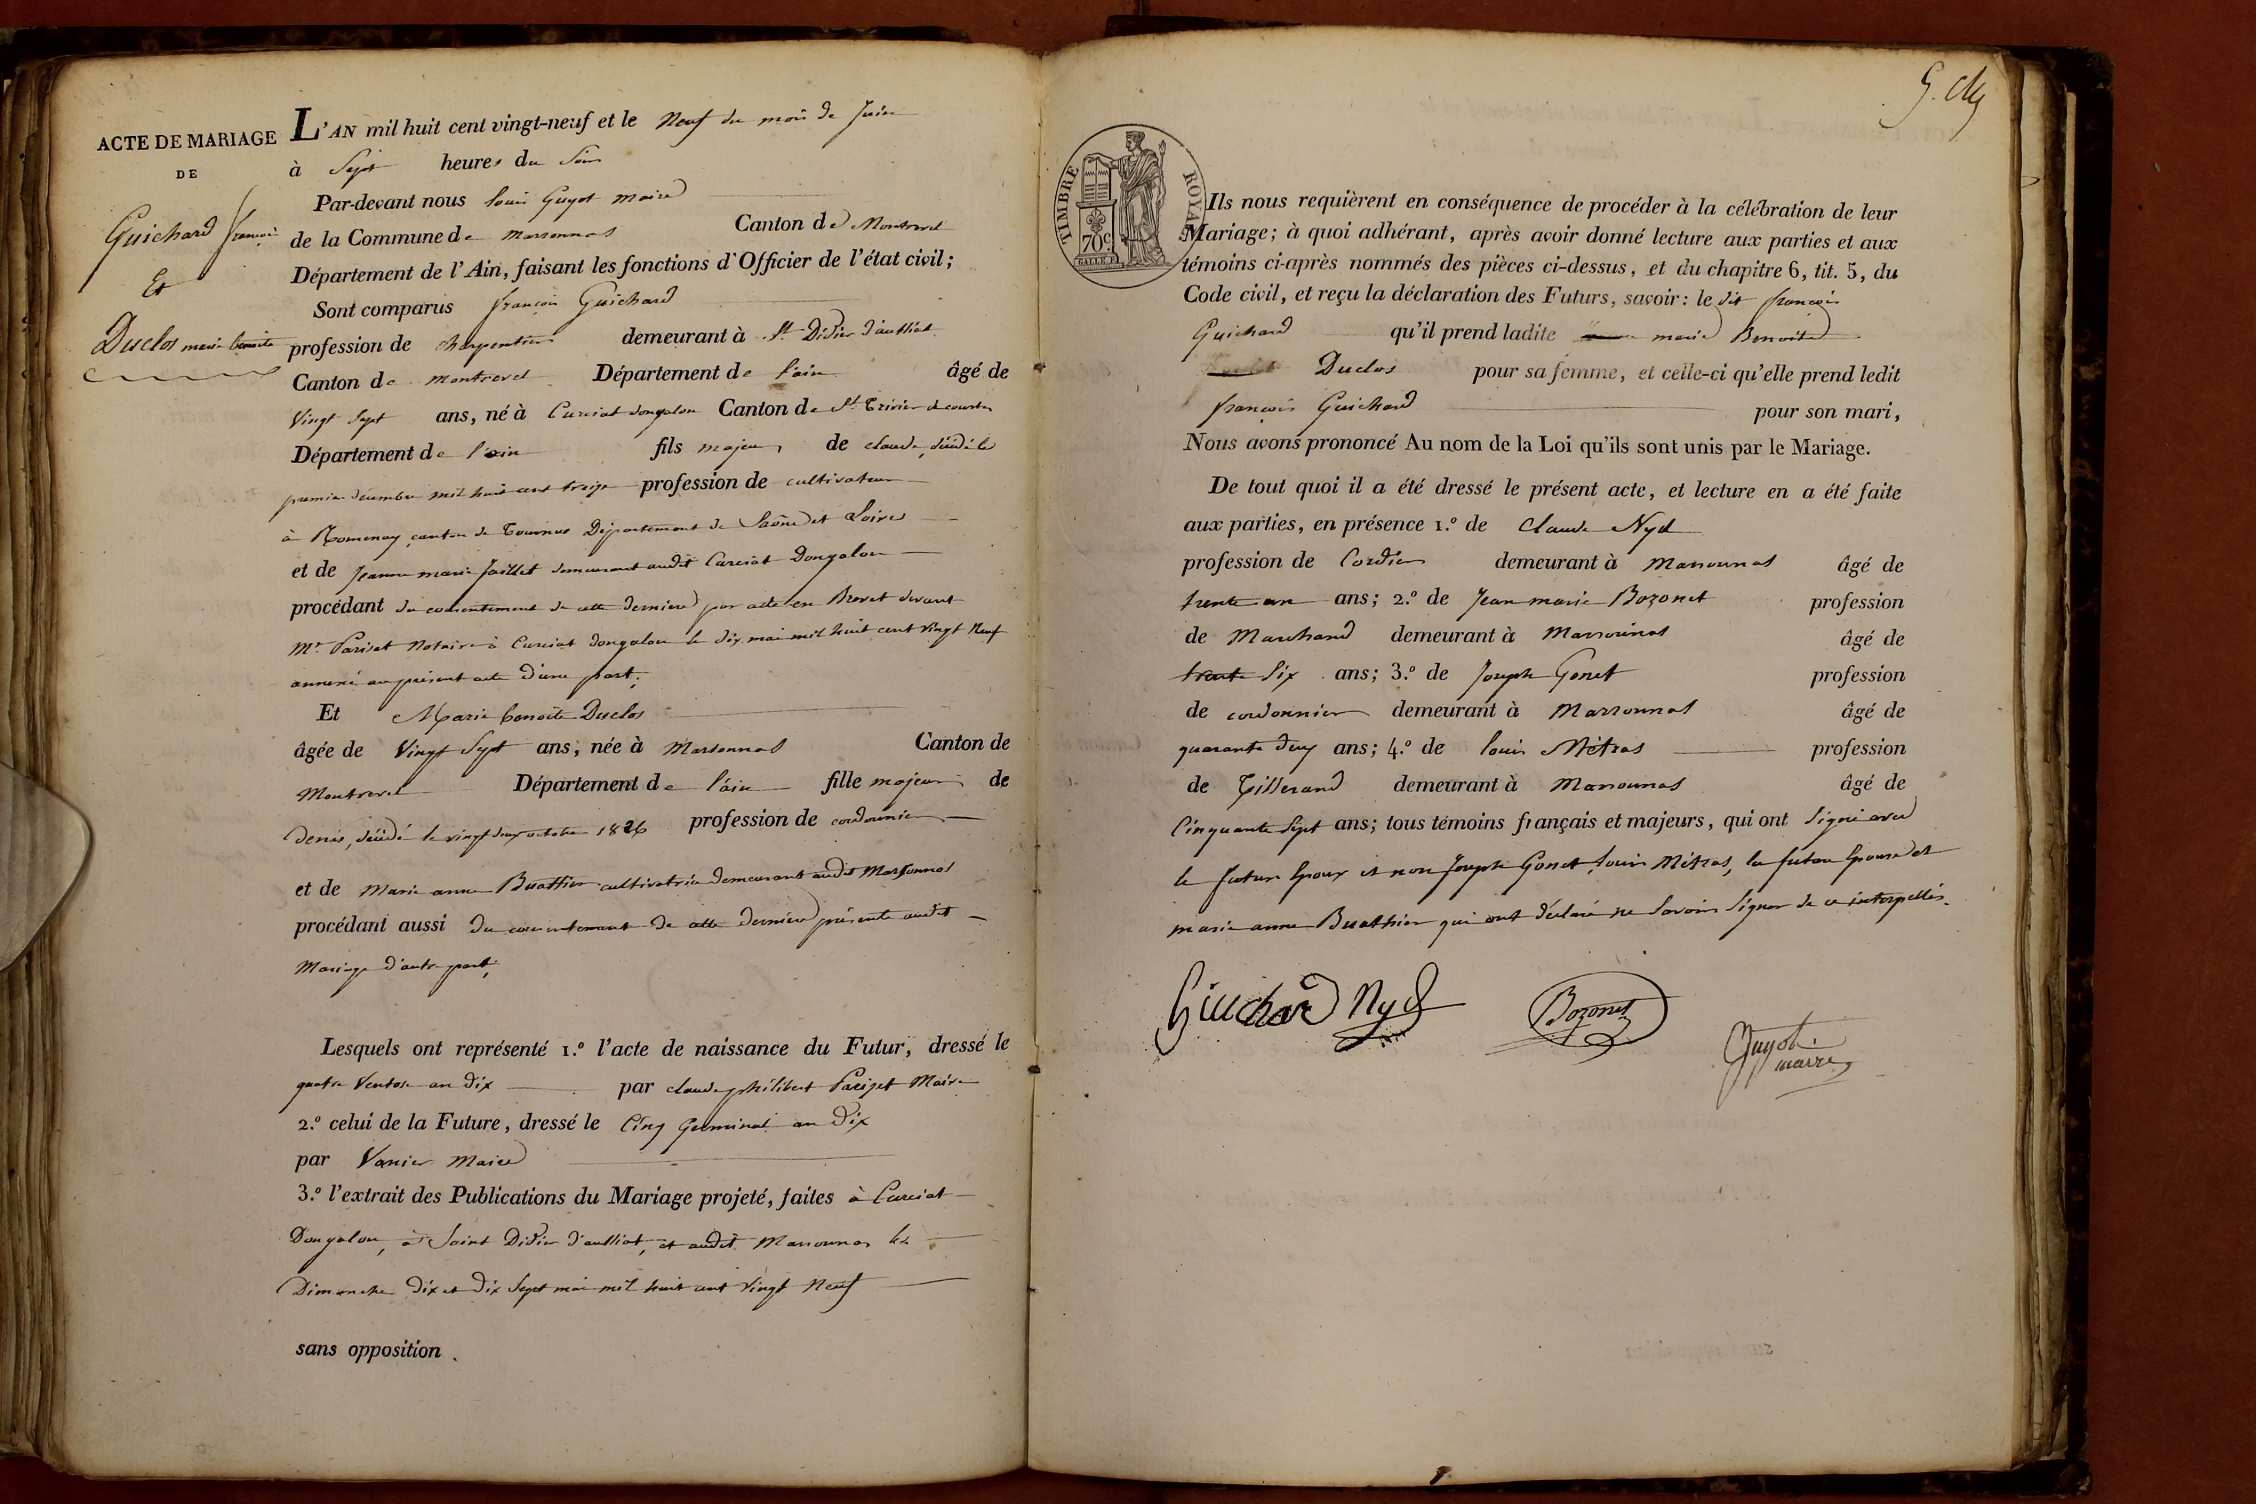 ACTE DE MARIAGE
DE
Guichard françois
Et
Duclos marie benoite
L'AN mil huit cent vingt-neuf et le Neuf du mois de Juin
à Sept heures du Soir
Par-devant nous Louis Guyot maire
de la Commune de marsonnas Canton de Montrevel
Département de l'Ain, faisant les fonctions d'Officier de l'état civil;
Sont comparus françois Guichard
profession de charpentier demeurant à St Didier d'aussiat
Canton de montrevel Département de l'ain âgé de
Vingt Sept ans, né à Curciat dongalon Canton de St Trivier de courtes
Département de l'ain fils majeur de claude, décédé le
premier décembre mil huit cent treize profession de cultivateur
à Romenay canton de Tournus Département de Saône et Loire
et de Jeanne marie Jaillet demeurant audit Curciat Dongalon
procédant du consentement de cette derniere par acte en Brevet devant
Mr Pariset Notaire à Curciat dongalon le dix mai mil huit cent vingt Neuf
annexé au présent acte d'une part;
Et Marie benoite Duclos
âgée de Vingt Sept ans, née à Marsonnas Canton de
Montrevel Département de l'ain fille majeure de
Denis, décédé le vingt deux octobre 1826 profession de cordonnier
et de Marie anne Buathier cultivatrice demeurant audit Marsonnas
procédant aussi du consentement de cette derniere présente audit
Mariage d'autre part;
Lesquels ont représenté 1.º l'acte de naissance du Futur, dressé le
quatre Ventose an dix par claude philibert Pariset Maire
2.º celui de la Future, dressé le Cinq Germinal an Dix
par Vanier Maire
3.º l'extrait des Publications du Mariage projeté, faites à Curciat
Dongalon, à Saint Didier d'aussiat, et audit Marsonnas les
Dimanche dix et dix Sept mai mil huit cent Vingt Neuf
sans opposition.
TIMBRE ROYAL
70c
Ils nous requièrent en conséquence de procéder à la célébration de leur
Mariage; à quoi adhérant, après avoir donné lecture aux parties et aux
témoins ci-après nommés des pièces ci-dessus, et du chapitre 6, tit. 5, du
Code civil, et reçu la déclaration des Futurs, savoir: le dit françois
Guichard qu'il prend ladite marie Benoite
Duclos pour sa femme, et celle-ci qu'elle prend ledit
françois Guichard pour son mari,
Nous avons prononcé Au nom de la Loi qu'ils sont unis par le Mariage.
De tout quoi il a été dressé le présent acte, et lecture en a été faite
aux parties, en présence 1.º de Claude Nyd
profession de Cordier demeurant à Marsonnas âgé de
trente un ans; 2.º de Jean marie Bozonet profession
de Marchand demeurant à Marsonnas âgé de
trente Six ans; 3.º de Joseph Gonet profession
de cordonnier demeurant à Marsonnas âgé de
quarante deux ans; 4.º de Louis Métras profession
de Tisserand demeurant à Marsonnas âgé de
Cinquante Sept ans; tous témoins français et majeurs, qui ont Signé avec
le futur Epoux et non Joseph Gonet, Louis Métras, la future Epouse et
marie anne Buathier qui ont déclaré ne Savoir Signer de ce interpellés.
Guichard Nyd Bozonet
Guyot
maire